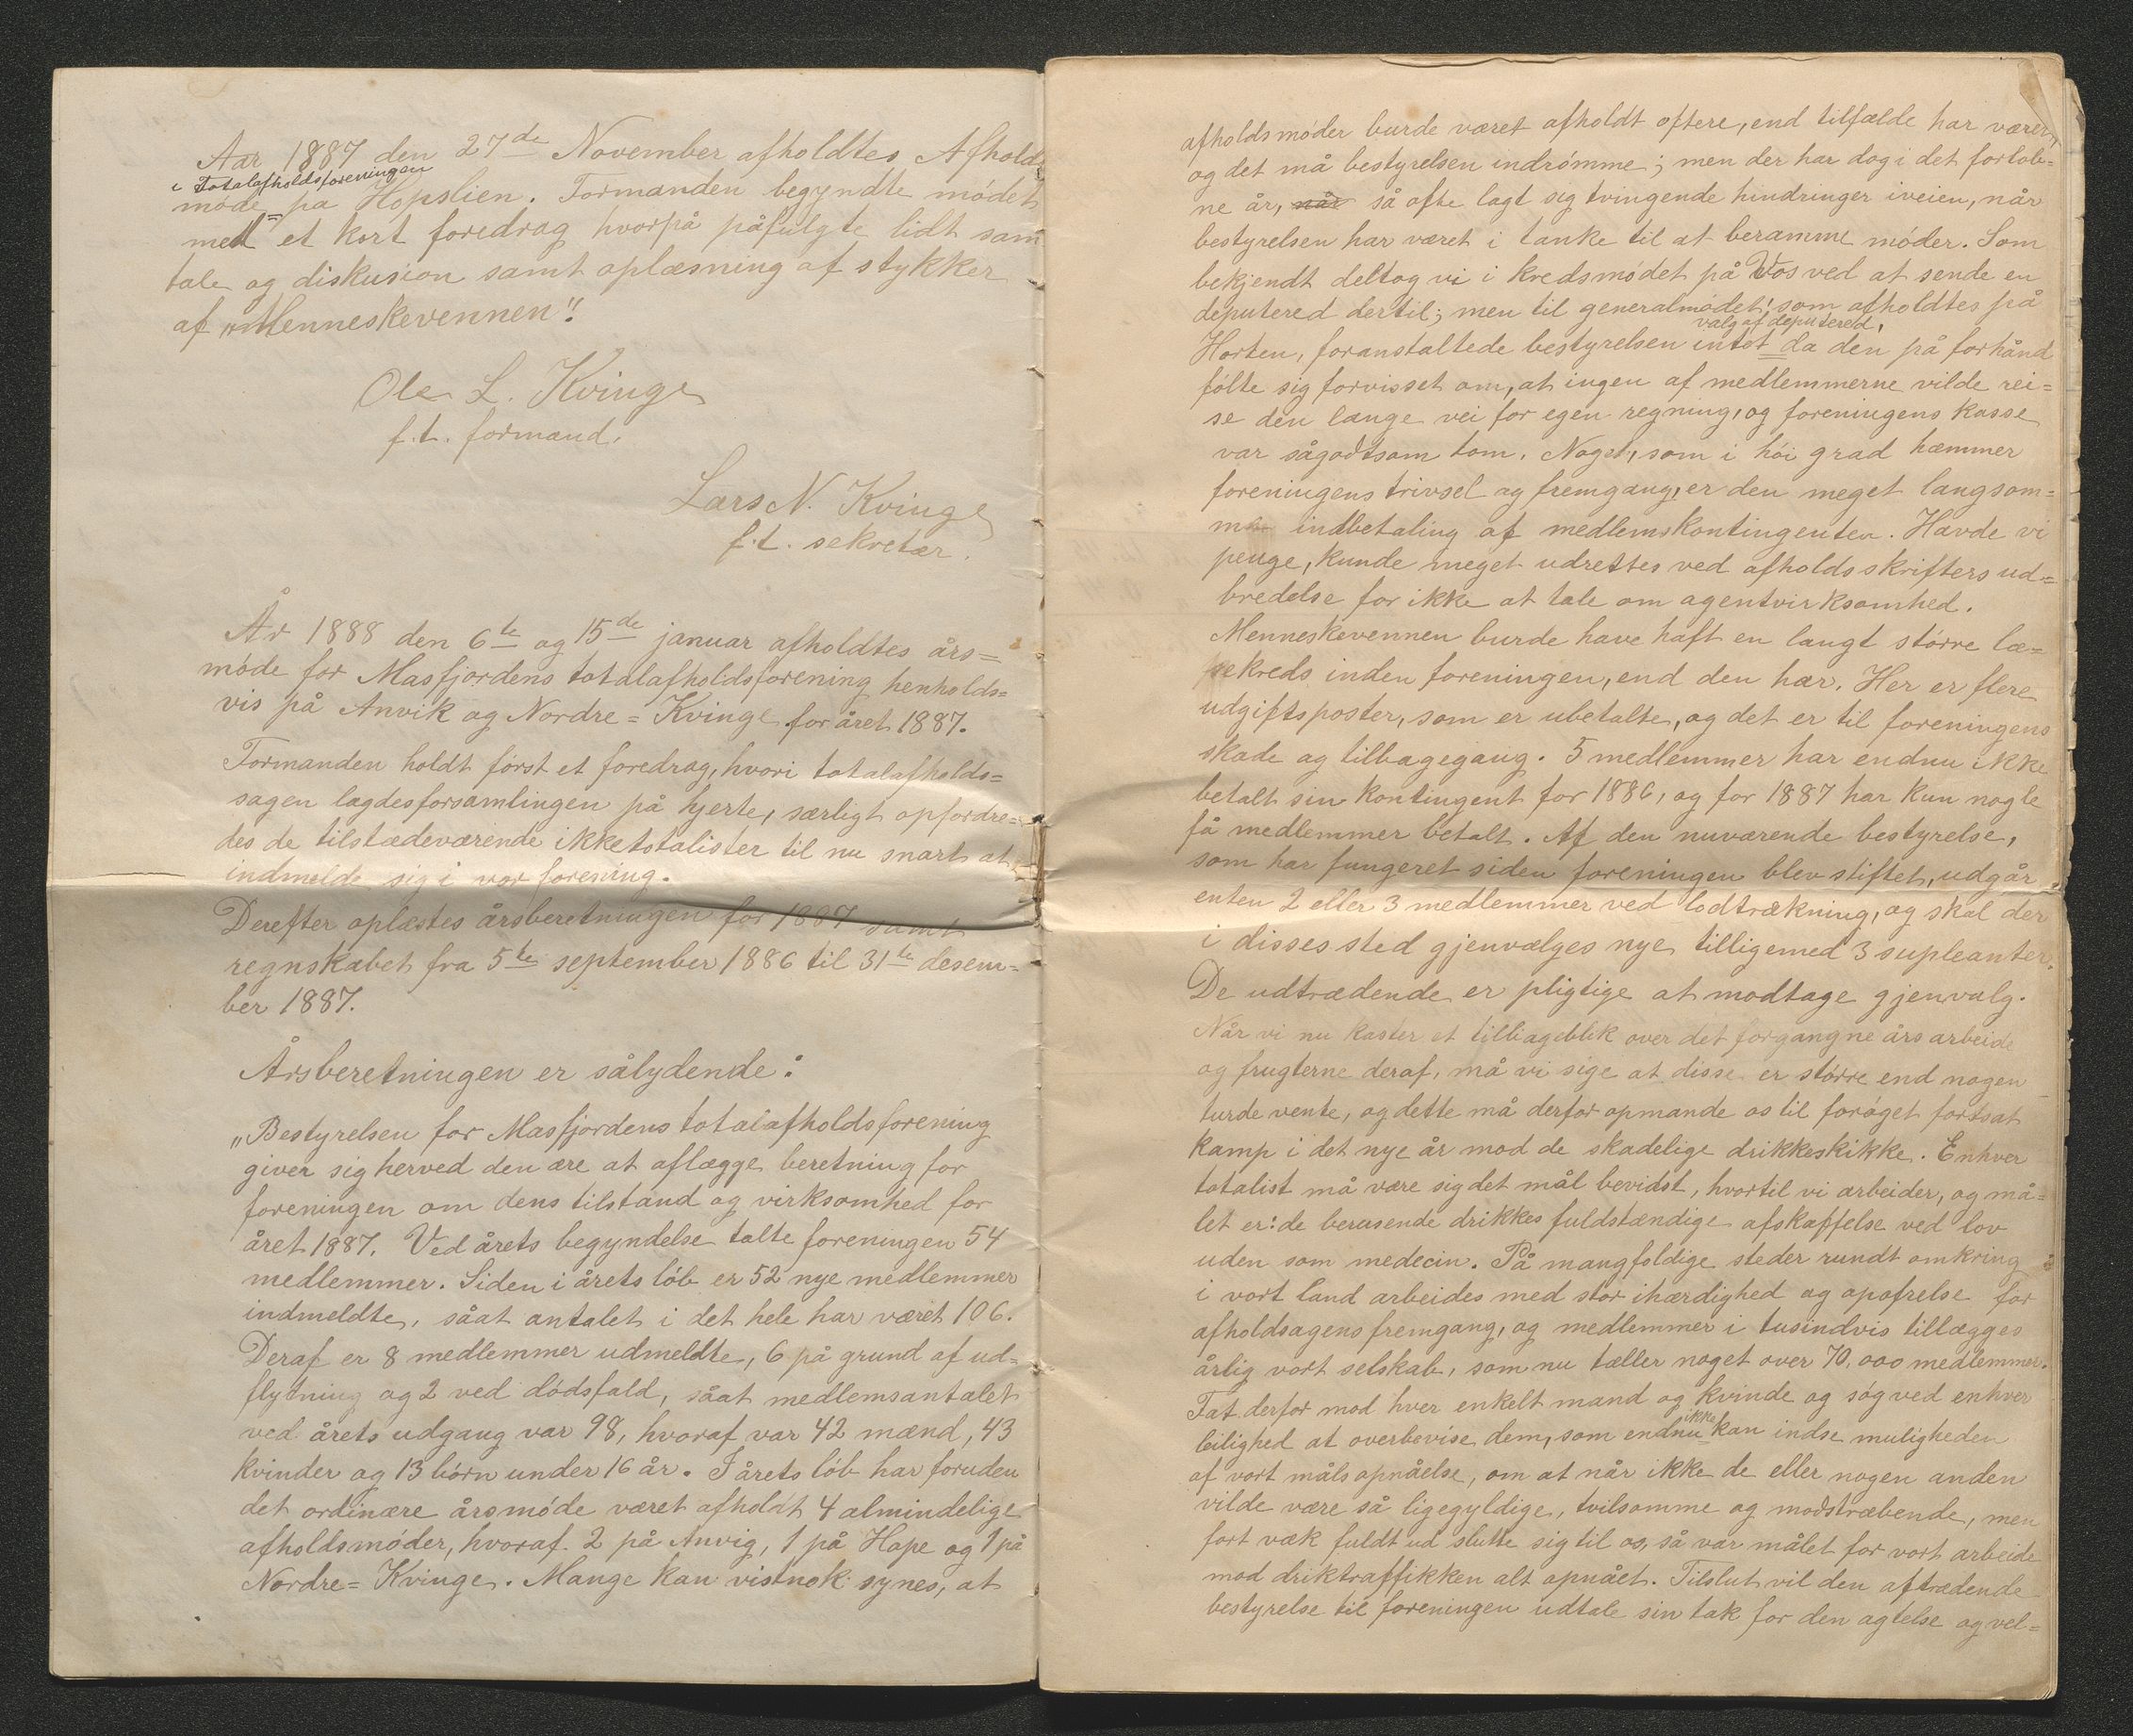 Aar 1887 den 27de November afholdtes Afholds
i Totalafholdsforeningen
møde på Hopslien. Formanden begyndte mødet
med et kort foredrag hvorpå påfulgte lidt sam
tale og diskusion samt oplæsning af stykker
af „Menneskevennen".
Ole L. Kvinge
f.t. formand.
Lars N. Kvinge
f.t. sekretær.
År 1888 den 6te og 15de januar afholdtes års=
møde for Masfjordens totalafholdsforening henholds=
vis på Anvik og Nordre=Kvinge for året 1887.
Formanden holdt først et foredrag, hvori totalafholds=
sagen lagdes forsamlingen på hjerte, særligt opfordre=
des de tilstædeværende ikketotalister til nu snart at
indmelde sig i vor forening.
Derefter oplæstes årsberetningen for 1887 samt
regnskabet fra 5te september 1886 til 31te desem=
ber 1887.
Årsberetningen er sålydende:
„Bestyrelsen for Masfjordens totalafholdsforening
giver sig herved den ære at aflægge beretning for
foreningen om dens tilstand og virksomhed for
året 1887. Ved årets begyndelse talte foreningen 54
medlemmer. Siden i årets løb er 52 nye medlemmer
indmeldte, såat antalet i det hele har været 106.
Deraf er 8 medlemmer udmeldte, 6 på grund af ud=
flytning og 2 ved dødsfald, såat medlemsantalet
ved årets udgang var 98, hvoraf var 42 mænd, 43
kvinder og 13 børn under 16 år. I årets løb har foruden
det ordinære årsmøde været afholdt 4 almindelige
afholdsmøder, hvoraf 2 på Anvig, 1 på Hope og 1 på
Nordre=Kvinge. Mange kan vistnok synes, at
afholdsmøder burde været afholdt oftere, end tilfælde har været,
og det må bestyrelsen indrømme; men der har dog i det forløb=
ne år, når så ofte lagt sig tvingende hindringer iveien, når
bestyrelsen har været i tanke til at beramme møder. Som
bekjendt deltog vi i kredsmødet på Vos ved at sende en
deputered dertil; men til generalmødet, som afholdtes på
valg af deputered,
Horten, foranstaltede bestyrelsen intet da den på forhånd
følte sig forvisset om, at ingen af medlemmerne vilde rei=
se den lange vei for egen regning, og foreningens kasse
var sågodtsom tom. Noget, som i høi grad hæmmer
foreningens trivsel og fremgang, er den meget langsom=
me indbetaling af medlemskontingenten. Havde vi
penge, kunde meget udrettes ved afholdsskrifters ud=
bredelse for ikke at tale om agentvirksomhed.
Menneskevennen burde have haft en langt større læ=
sekreds inden foreningen, end den har. Her er flere
udgiftsposter, som er ubetalte, og det er til foreningens
skade og tilbagegang. 5 medlemmer har endnu ikke
betalt sin kontingent for 1886, og for 1887 har kun nogle
få medlemmer betalt. Af den nuværende bestyrelse,
som har fungeret siden foreningen blev stiftet, udgår
enten 2 eller 3 medlemmer ved lodtrækning, og skal der
i disses sted gjenvælges nye tilligemed 3 supleanter.
De udtrædende er pligtige at modtage gjenvalg.
Når vi nu kaster et tilbageblik over det forgangne års arbeide
og frugterne deraf, må vi sige at disse er større end nogen
turde vente, og dette må derfor opmande os til forøget fortsat
kamp i det nye år mod de skadelige drikkeskikke. Enhver
totalist må være sig det mål bevidst, hvortil vi arbeider, og må=
let er: de berusende drikkes fuldstændige afskaffelse ved lov
uden som medecin. På mangfoldige steder rundt omkring
i vort land arbeides med stor ihærdighed og opofrelse for
afholdsagens fremgang, og medlemmer i tusindvis tillægges
årlig vort selskab, som nu tæller noget over 70,000 medlemmer.
Tat derfor mod hver enkelt mand og kvinde og søg ved enhver
ikke
leilighed at overbevise dem, som endnu kan indse muligheden
af vort måls opnåelse, om at når ikke de eller nogen anden
vilde være så ligegyldige, tvilsomme og modstræbende, men
fort væk fuldt ud slutte sig til os, så var målet for vort arbeide
mod driktraffikken alt opnået. Tilslut vil den aftrædende
bestyrelse til foreningen udtale sin tak for den agtelse og vel=